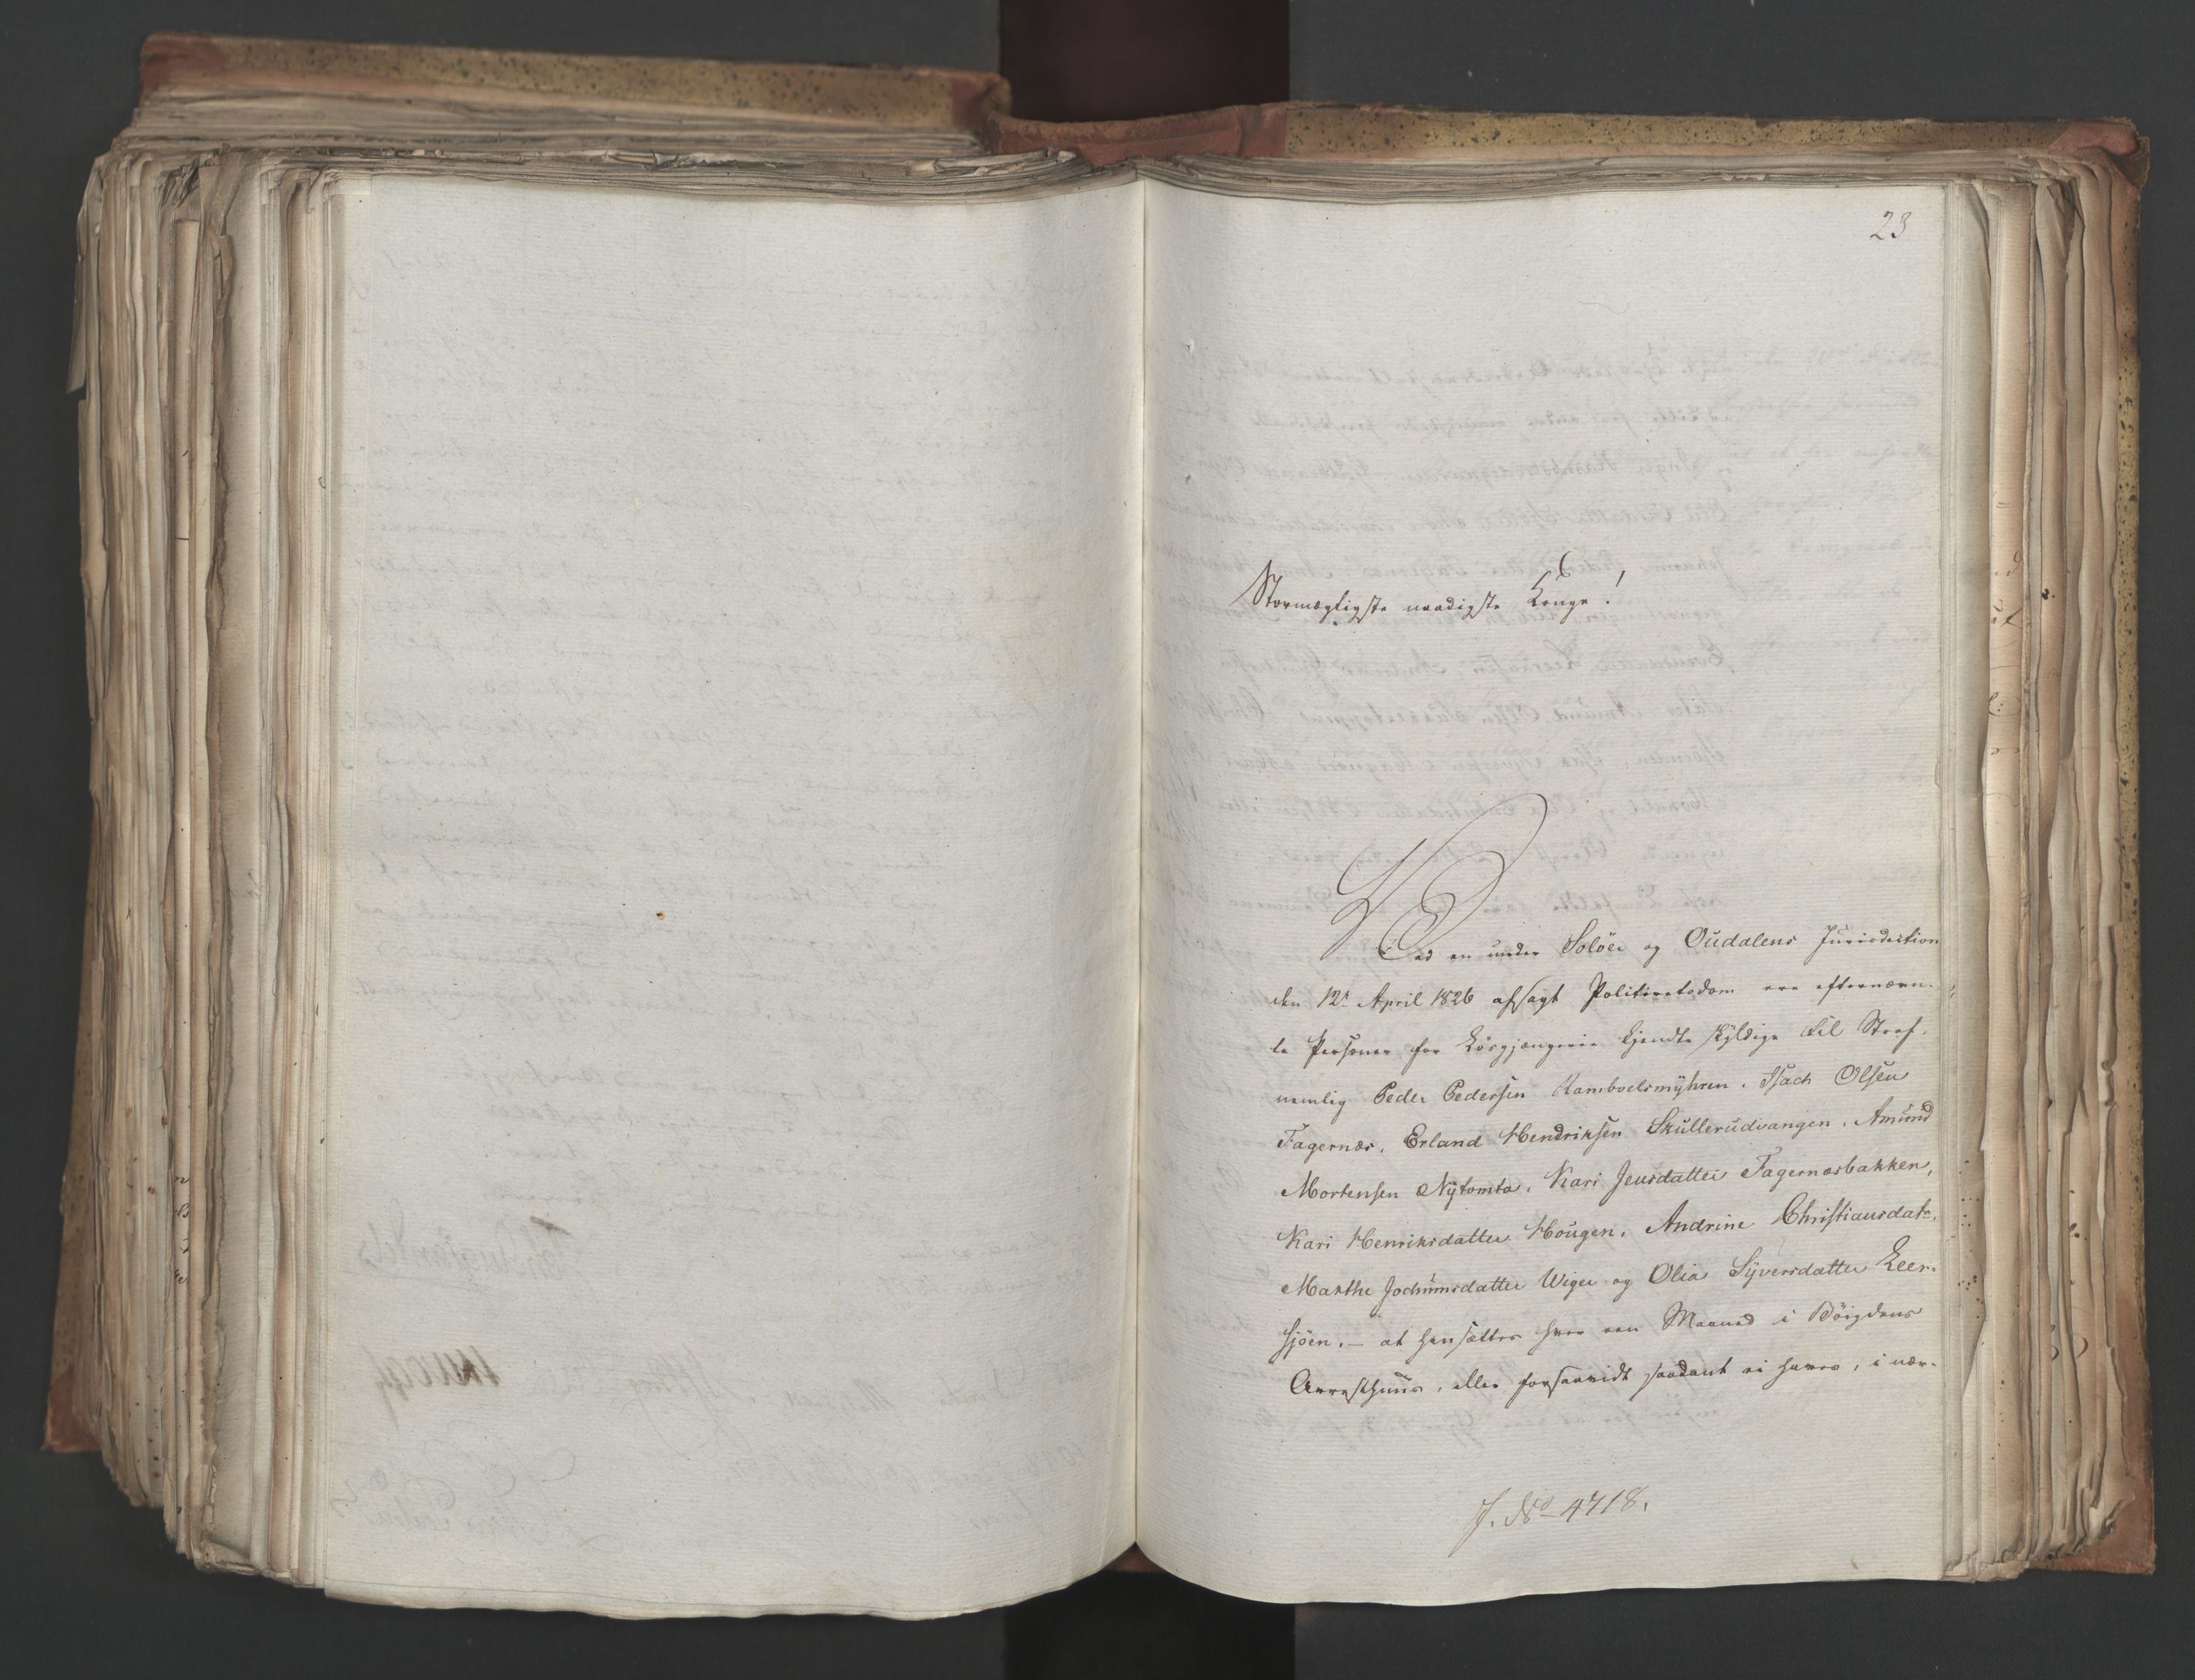 23
Stormægtigste naadigste Konge!
Ved en under Solöer og Oudalens Jurisdiction
den 12te April 1826 afsagt Politieretsdom ere efternævn-
te Personer for Løsgjængerie kjendte skyldige til Straf,
nemlig Peder Pedersen Ramboelsmÿhren, Isach Olsen
Fagernæs, Erland Hendriksen Skullerudvangen, Amund
Mortensen Nÿtomta, Kari Jensdatter Fagernæsbakken,
Kari Henriksdatter Hougen, Andrine Christiansdatr,
Marthe Jochumsdatter Wiger og Olia Sÿversdatter Leer-
sjöen, – at hensættes hver een Maaned i Böigdens
Arresthuus, eller forsaavidt saadant ei haves, i nær-
J. No 4718.